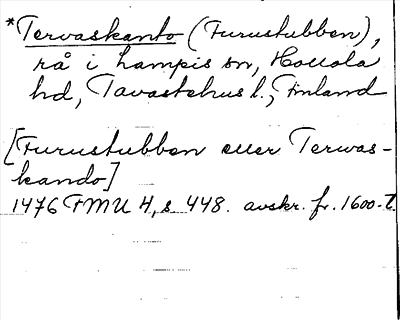 *Tervaskanto (Furustubben),
rå i Lampis sn, Hollola
hd, Tavastehus l., Finland
[Furustubben eller Terwas-
kando]
1476 FMU 4, s 448. avskr. fr. 1600-t.